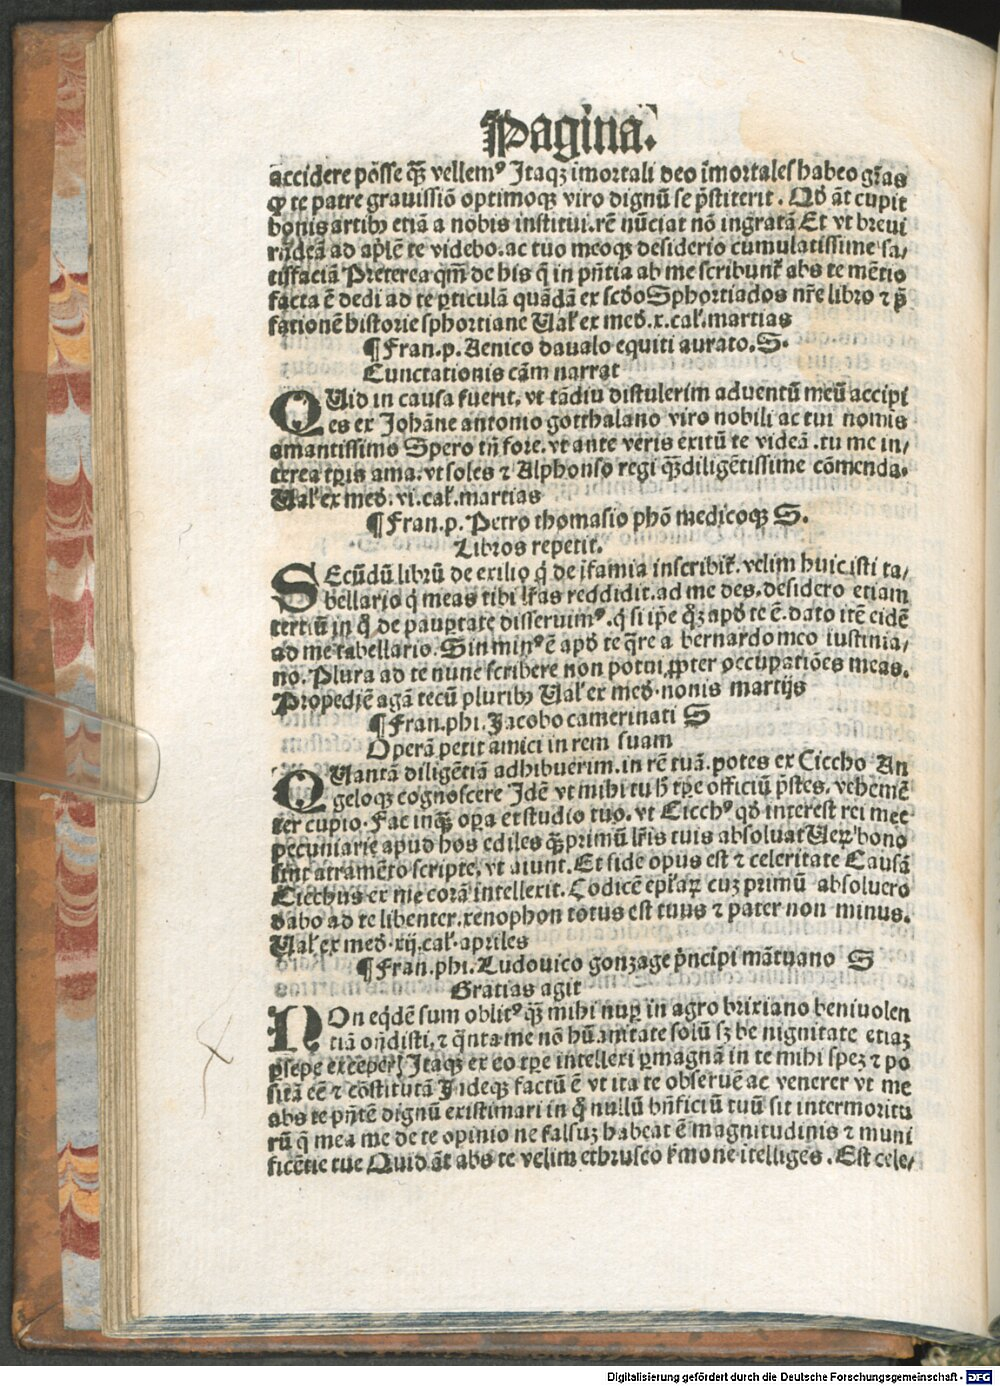 Pagina.
accidere põsse q̃ȝ vellemꝰ Itaqȝ imortali deo ĩmortales habeo gr̃as
ꝙ te patre grauissiõ optimoqȝ viro dignũ se p̃stiterit. Qđ ãt cupit
bonis artibꝰ etiã a nobis institui. rẽ nũciat nõ ingratã Et vt breui
rñdeã ad aplẽ te videbo. ac tuo meoqȝ desiderio cumulatissime sa/
tisfaciã Preterea qm̃ de his q̃ in pñtia ab me scribunt᷑ abs te mẽtio
facta ẽ dedi ad te ꝑticulã quãdã ex scđo Sphortiados nr̃e libro ⁊ p̃
fationẽ historie sphortiane Ual᷑ ex međ. x. cal᷑. martias
¶ Fran. p. Aenico daualo equiti aurato. S.
Cunctationis cãm narrat
QUid in causa fuerit, vt tãdiu distulerim aduentũ meũ accipi
es ex Johãne antonio gotthalano viro nobili ac tui nomĩs
amantissimo Spero tñ fore. vt ante veris exitũ te videã. tu me in/
terea tp̃is ama. vt soles ⁊ Alphonso regi q̃ȝdiligẽtissime cõmenda.
Ual᷑ ex međ. vi. cal᷑. martias
¶ Fran. p. Petro thomasio phõ medicoqȝ S.
Libros repetit.
SEcũdũ librũ de exilio q̃ de ĩfamia inscribit᷑. velim huic isti ta/
bellario q̃ meas tibi lr̃as reddidit. ad me des. desidero etiam
tertiũ in q̃ de pauptate disseruimꝰ. q̃ si ip̃e q̃ȝ apđ te ẽ. dato itẽ eidẽ
ad me tabellario. Sin minꝰ ẽ apđ te q̃re a bernardo meo iustinia/
no. Plura ad te nunc scribere non potui ꝓpter occupatiões meas.
Propedjẽ agã tecũ pluribꝰ Ual᷑ ex međ. nonis martijs
¶ Fran. phi. Jacobo camerinati S
Operã petit amici in rem suam
QUantã diligẽtiã adhibuerim. in rẽ tuã. potes ex Ciccho An
geloqȝ cognoscere Idẽ vt mihi tu h̃ tp̃e officiũ p̃stes. vehemẽ
ter cupio. Fac inq̃ȝ op̃a et studio tuo. vt Cicchꝰ qđ interest rei mee
pecuniarie apud hos ediles q̃ȝprimũ lr̃is tuis absoluat Ueꝝ bono
sint atramẽto scripte, vt aiunt. Et side opus est ⁊ celeritate Causã
Cicchus ex me corã intellexit. Codicẽ epl᷑aꝝ cuȝ primũ absoluero
dabo ad te libenter. xenophon totus est tuus ⁊ pater non minus.
Ual᷑ ex međ. xij. cal᷑. apriles
¶ Fran. phi. Ludouico gonzage p̃ncipi mãtuano S
Gratias agit
NOn eqdẽ sum oblitꝰ q̃ȝ mihi nuꝑ in agro brixiano beniuolen
tiã oñdisti, ⁊ q̃nta me nõ hũanitate solũ sȝ be nignitate etiaȝ
ꝑsepe exceper̃ Itaqȝ ex eo tp̃e intellexi ꝑmagnã in te mihi speȝ ⁊ po
sitã eẽ ⁊ cõstitutã Indeqȝ factũ ẽ vt ita te obseruẽ ac venerer vt me
abs te pñtẽ dignũ existimari in q̃ nullũ bñficiũ tuũ sit intermoritu
rũ q̃ mea me de te opinio ne falsuȝ habeat ẽ magnitudinis ⁊ muni
ficẽtie tue Quid ãt abs te velim ethrusco s̃mone itelliges. Est cele/
Digitalisierung gefördert durch die Deutsche Forschungsgemeinschaft - DFG